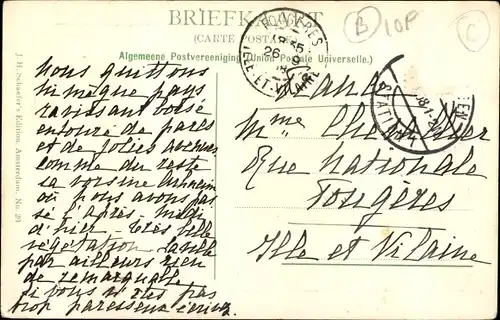 BRIEFKAART
(CARTE POSTALE)
Algemeene Postvereeniging (Union Postale Universelle.)
FOUGÈRES
26
ILLE-ET-VILAINE
B
10P
C
J. H. Schaefer's Edition, Amsterdam. No. 20
Nous quittons
pays
ravissant boisé
entouré de parcs
et de jolies
comme du reste
sa voisine Arnheim
où nous avons pas
sé l'après-midi
d'hier - très belle
végétation
par ailleurs rien
de remarquable
si vous n'êtes pas
trop paresseux écrivez
Mme
Rue Nationale
Fougères
Ille et Vilaine